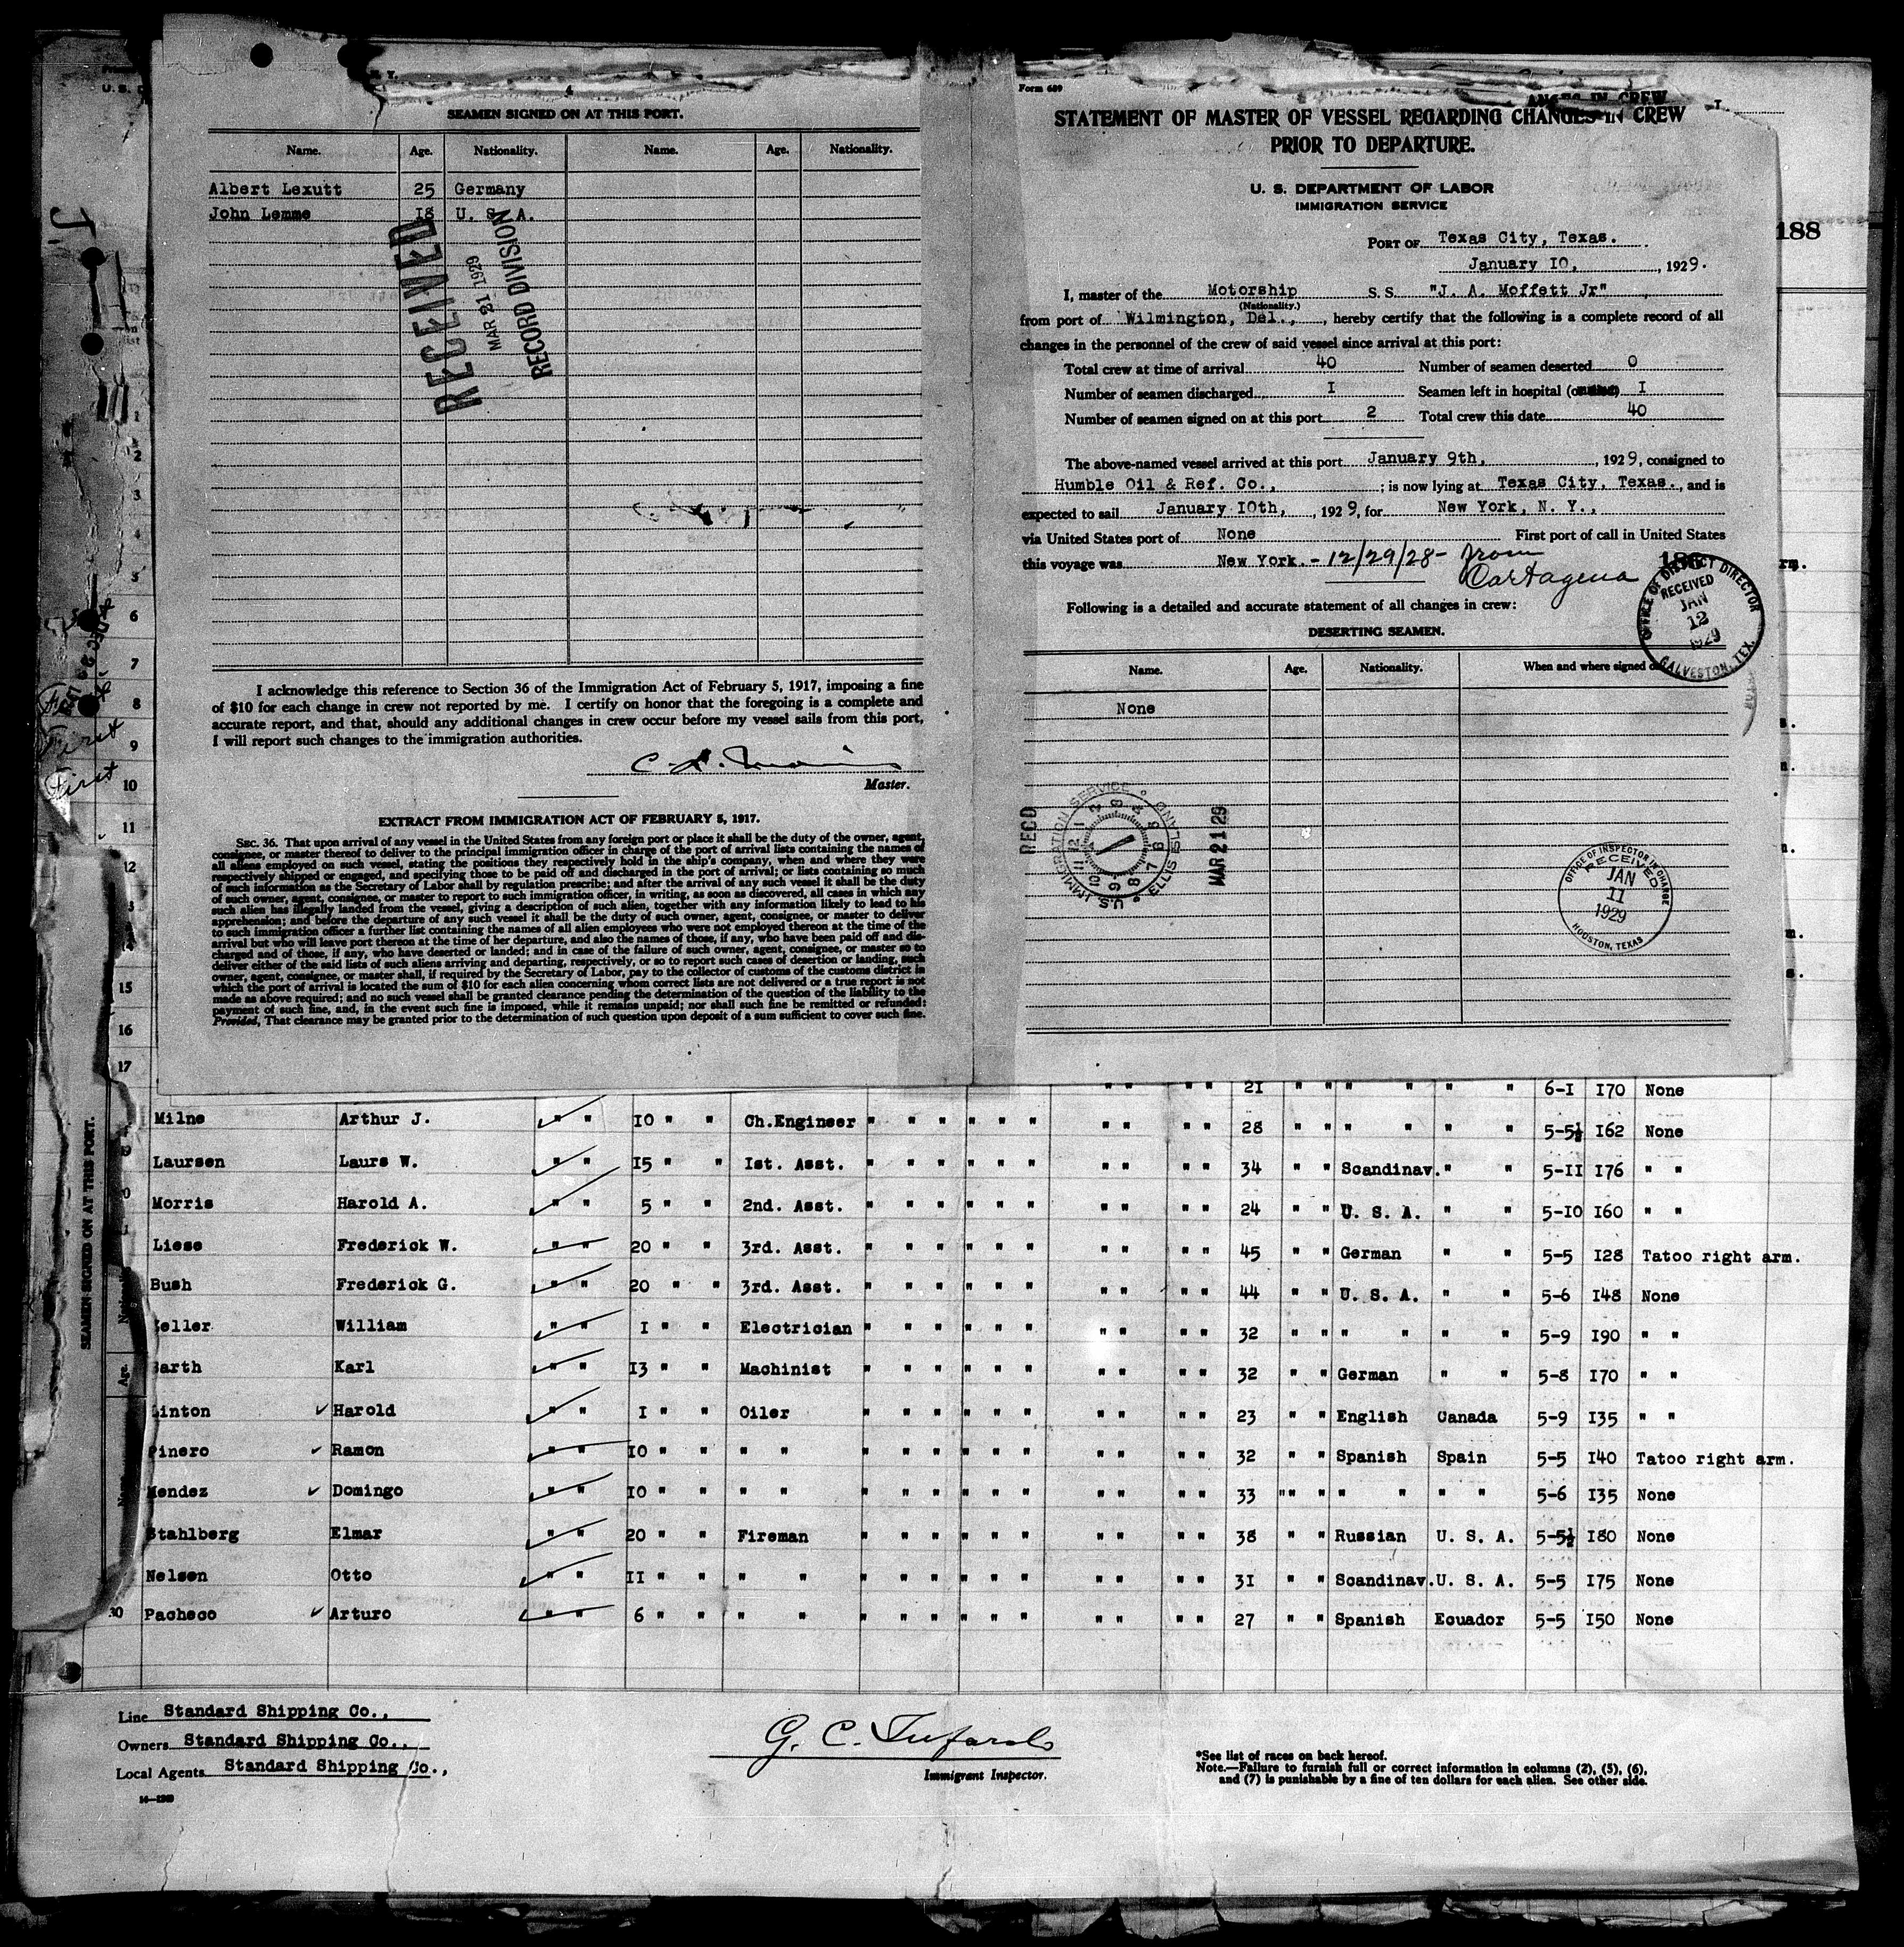 4
SEAMEN SIGNED ON AT THIS PORT.
Name. Age. Nationality. Name. Age. Nationality.
Albert Lexutt 25 Germany
John Lemme 18 U. S. A.
RECEIVED
MAR 21 1929
RECORD DIVISION
I acknowledge this reference to Section 36 of the Immigration Act of February 5, 1917, imposing a fine
of $10 for each change in crew not reported by me. I certify on honor that the foregoing is a complete and
accurate report, and that, should any additional changes in crew occur before my vessel sails from this port,
I will report such changes to the immigration authorities.
Master.
EXTRACT FROM IMMIGRATION ACT OF FEBRUARY 5, 1917.
SEC. 36. That upon arrival of any vessel in the United States from any foreign port or place it shall be the duty of the owner, agent,
consignee, or master thereof to deliver to the principal immigration officer in charge of the port of arrival lists containing the names of
all aliens employed on such vessel, stating the positions they respectively hold in the ship's company, when and where they were
respectively shipped or engaged, and specifying those to be paid off and discharged in the port of arrival; or lists containing so much
of such information as the Secretary of Labor shall by regulation prescribe; and after the arrival of any such vessel it shall be the duty
of such owner, agent, consignee, or master to report to such immigration officer, in writing, as soon as discovered, all cases in which any
such alien has illegally landed from the vessel, giving a description of such alien, together with any information likely to lead to his
apprehension; and before the departure of any such vessel it shall be the duty of such owner, agent, consignee, or master to deliver
to such immigration officer a further list containing the names of all alien employees who were not employed thereon at the time of the
arrival but who will leave port thereon at the time of her departure, and also the names of those, if any, who have been paid off and dis-
charged and of those, if any, who have deserted or landed; and in case of the failure of such owner, agent, consignee, or master so to
deliver either of the said lists of such aliens arriving and departing, respectively, or so to report such cases of desertion or landing, such
owner, agent, consignee, or master shall, if required by the Secretary of Labor, pay to the collector of customs of the customs district in
which the port of arrival is located the sum of $10 for each alien concerning whom correct lists are not delivered or a true report is not
made as above required; and no such vessel shall be granted clearance pending the determination of the question of the liability to the
payment of such fine, and, in the event such fine is imposed, while it remains unpaid; nor shall such fine be remitted or refunded:
Provided, That clearance may be granted prior to the determination of such question upon deposit of a sum sufficient to cover such fine.
Form 689
STATEMENT OF MASTER OF VESSEL REGARDING CHANGES IN CREW
PRIOR TO DEPARTURE.
U. S. DEPARTMENT OF LABOR
IMMIGRATION SERVICE
PORT OF Texas City, Texas.
January 10, , 1929.
I, master of the Motorship S. S. "J. A. Moffett Jr" ,
(Nationality.)
from port of Wilmington, Del., , hereby certify that the following is a complete record of all
changes in the personnel of the crew of said vessel since arrival at this port:
Total crew at time of arrival 40 Number of seamen deserted 0
Number of seamen discharged I Seamen left in hospital I
Number of seamen signed on at this port 2 Total crew this date 40
The above-named vessel arrived at this port January 9th, , 1929, consigned to
Humble Oil & Ref. Co., ; is now lying at Texas City, Texas., and is
expected to sail January 10th, , 1929, for New York, N. Y.,
via United States port of None First port of call in United States
this voyage was New York. - 12/29/28 - from
Cartagena
Following is a detailed and accurate statement of all changes in crew:
DESERTING SEAMEN.
Name. Age. Nationality. When and where signed
None
OFFICE OF DISTRICT DIRECTOR
RECEIVED
JAN
12
1929
GALVESTON, TEX.
RECD
U.S. IMMIGRATION SERVICE ELLIS ISLAND
MAR 21 29
OFFICE OF INSPECTOR IN CHARGE
RECEIVED
JAN
11
1929
HOUSTON, TEXAS
188
First
First
1
2
3
4
5
6
7
8
9
10
11
12
15
16
17
SEAMEN SIGNED ON AT THIS PORT.
Age.
21 " " " " " 6-I 170 None
Milne Arthur J. " " 10 " " Ch.Engineer " " " " " " " " " " 28 " " " " " " 5-5½ 162 None
Laursen Laurs W. " " 15 " " Ist. Asst. " " " " " " " " " " 34 " " Scandinav. " " 5-II 176 " "
Morris Harold A. " " 5 " " 2nd. Asst. " " " " " " " " " " 24 " " U. S. A. " " 5-10 160 " "
Liese Frederick W. " " 20 " " 3rd. Asst. " " " " " " " " " " 45 " " German " " 5-5 128 Tatoo right arm.
Bush Frederick G. " " 20 " " 3rd. Asst. " " " " " " " " " " 44 " " U. S. A. " " 5-6 148 None
eller William " " I " " Electrician " " " " " " " " " " 32 " " " " " " 5-9 190 " "
Barth Karl " " 13 " " Machinist " " " " " " " " " " 32 " " German " " 5-8 170 " "
Linton Harold " " I " " Oiler " " " " " " " " " " 23 " " English Canada 5-9 135 " "
Pinero Ramon " " 10 " " " " " " " " " " " " " " 32 " " Spanish Spain 5-5 140 Tatoo right arm.
Mendez Domingo " " 10 " " " " " " " " " " " " " " 33 " " " " " " 5-6 135 None
Stahlberg Elmar " " 20 " " Fireman " " " " " " " " " " 38 " " Russian U. S. A. 5-5½ 180 None
Nelsen Otto " " II " " " " " " " " " " " " " " 31 " " Scandinav. U. S. A. 5-5 175 None
30 Pacheco Arturo " " 6 " " " " " " " " " " " " " " 27 " " Spanish Ecuador 5-5 150 None
Line Standard Shipping Co.,
Owners Standard Shipping Co.,
Local Agents Standard Shipping Co.,
G. C.
Immigrant Inspector.
*See list of races on back hereof.
Note.—Failure to furnish full or correct information in columns (2), (5), (6),
and (7) is punishable by a fine of ten dollars for each alien. See other side.